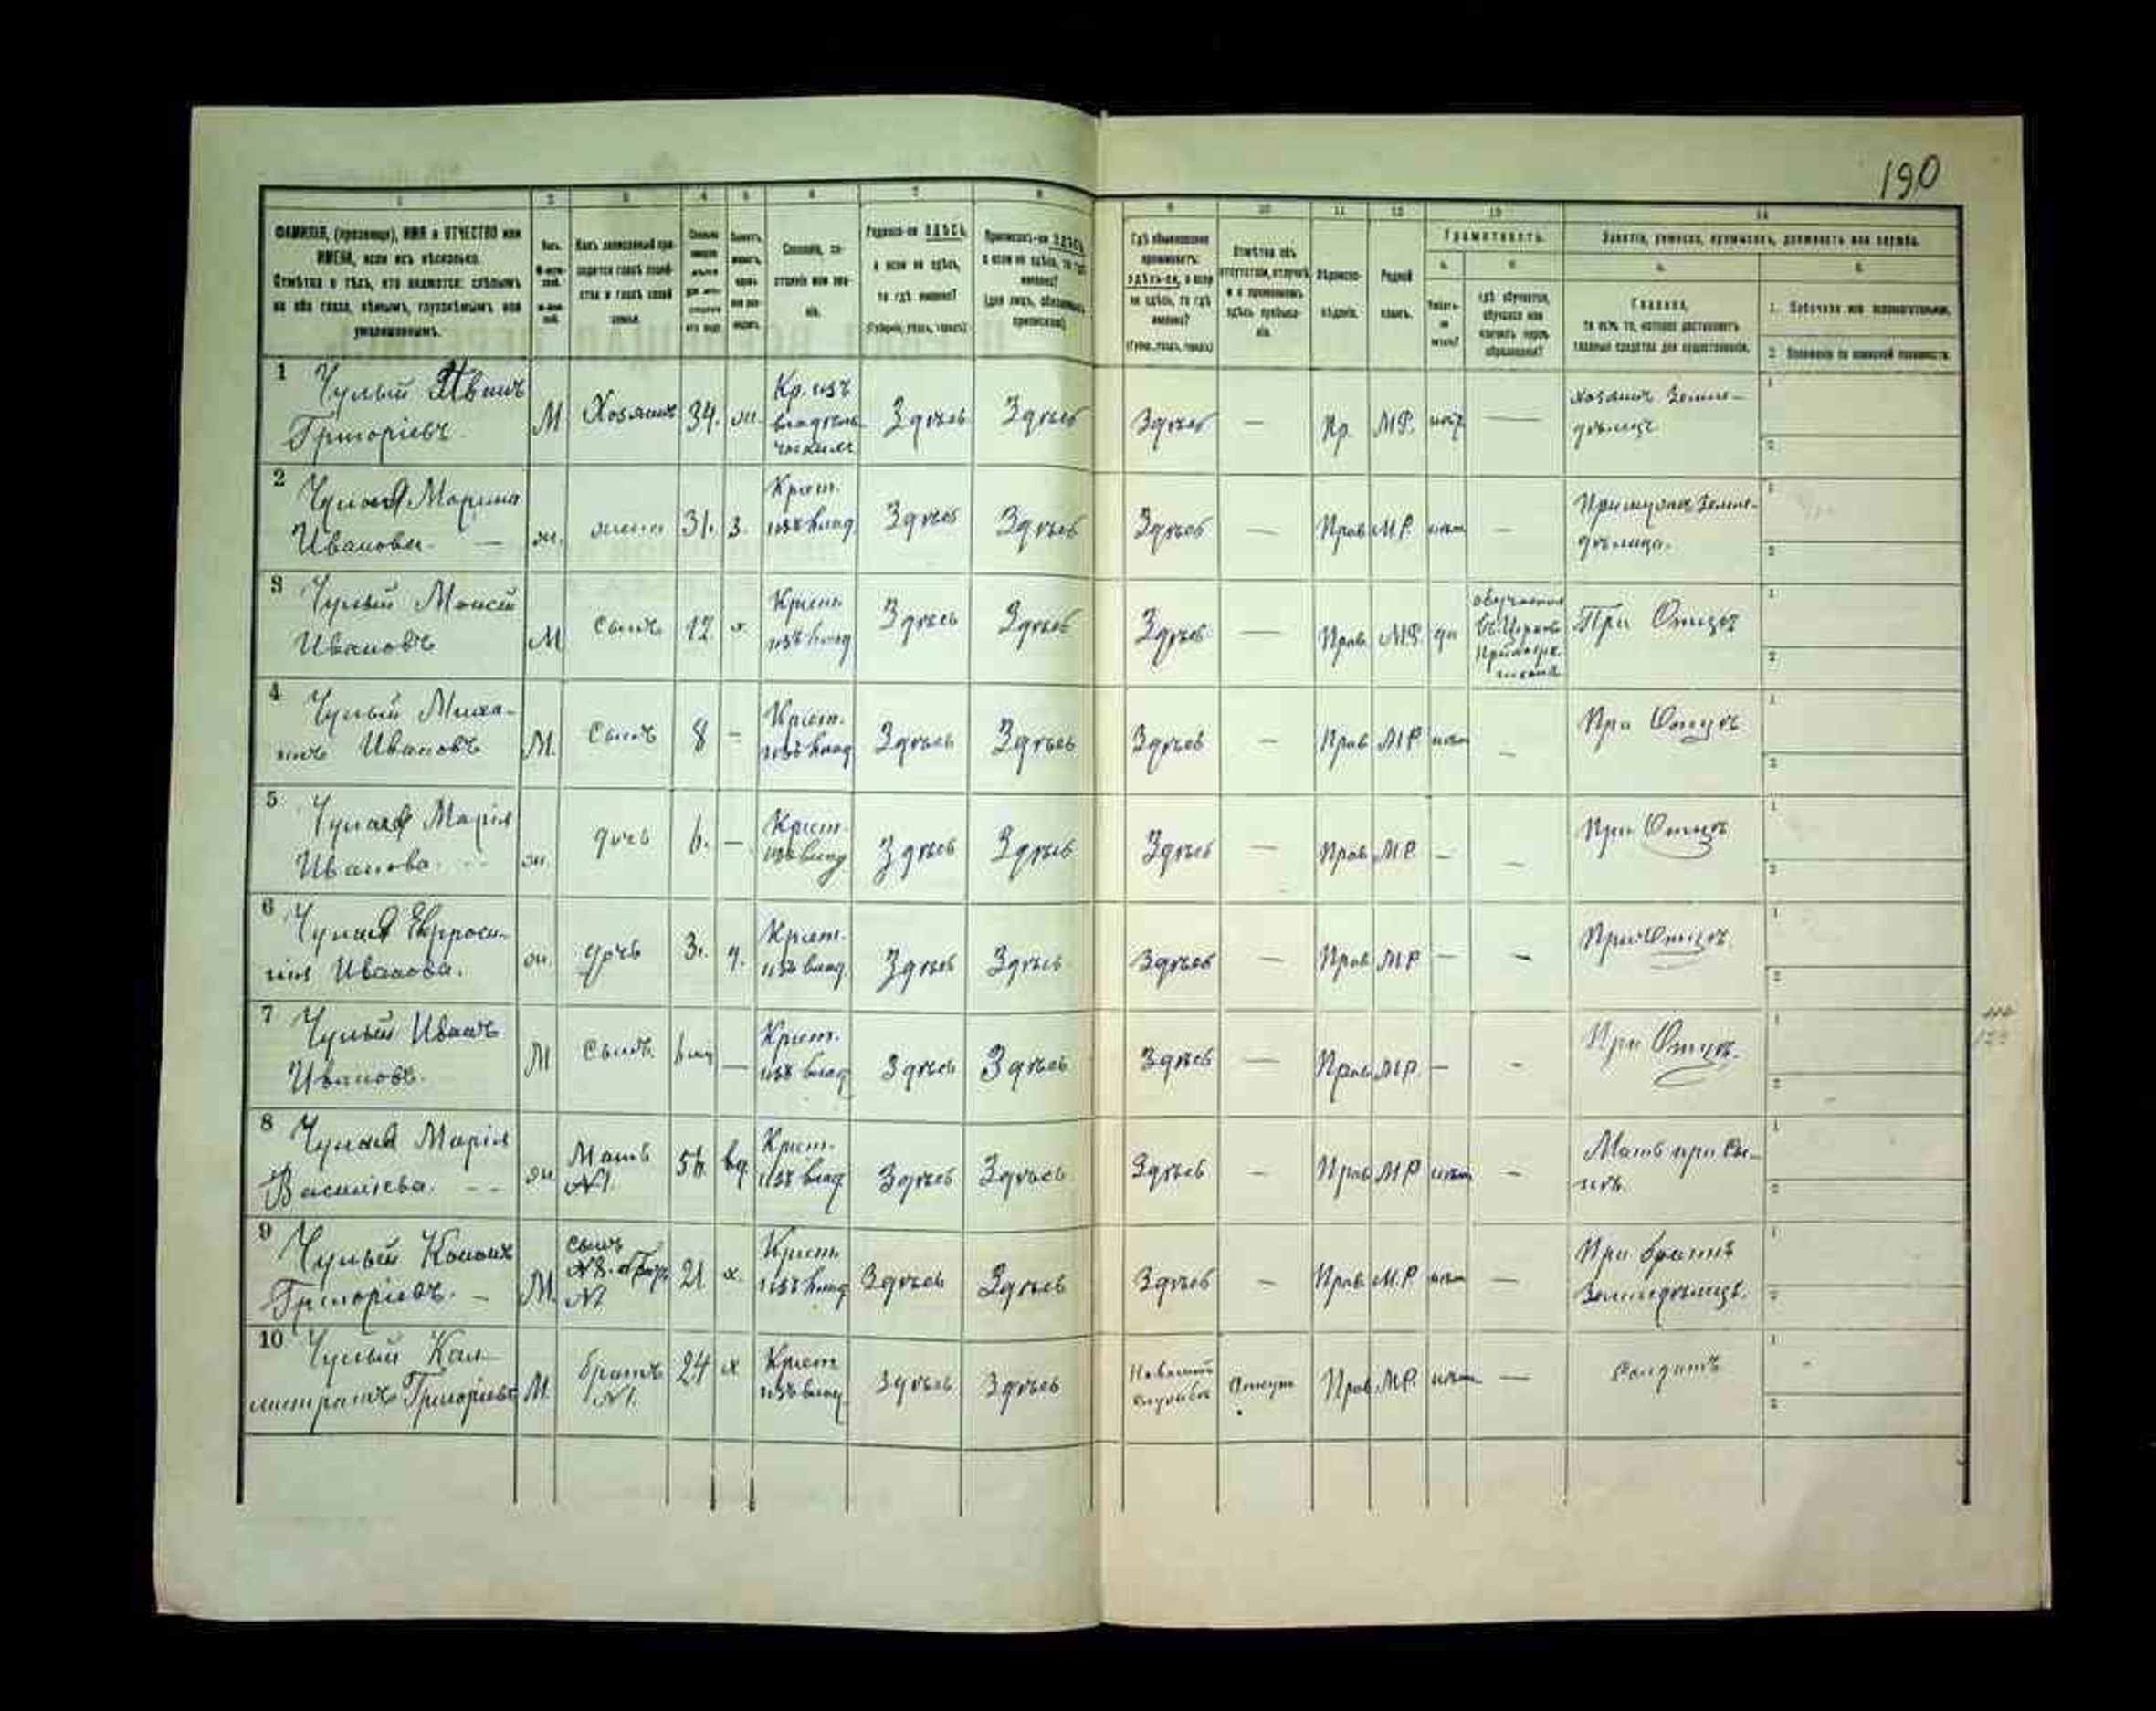 190
1 2 3 4 5 6 7 8 9 10 11 12 13 14
ФАМИЛІЯ, (прозвище), ИМЯ и ОТЧЕСТВО или
ИМЕНА, если ихъ нѣсколько.
Отмѣтка о тѣхъ, кто окажется: слѣпымъ
на оба глаза, нѣмымъ, глухонѣмымъ или
умалишеннымъ.
Полъ.
Какъ записанный при-
ходится главѣ хозяй-
ства и главѣ своей
семьи.
Сословіе, со-
стояніе или зва-
ніе.
Родился-ли ЗДѢСЬ,
а если не здѣсь,
то гдѣ именно?
(Губернія, уѣздъ, городъ)
Приписанъ-ли ЗДѢСЬ,
а если не здѣсь, то гдѣ
именно?
(для лицъ, обязанныхъ
припискою)
Гдѣ обыкновенно
проживаетъ:
здѣсь-ли, а если
не здѣсь, то гдѣ
именно?
(Губер., уѣздъ, городъ)
Отмѣтка объ
отсутствіи, отлучкѣ
и о временномъ
здѣсь пребыва-
ніи.
Вѣроиспо-
вѣданіе.
Родной
языкъ.
Грамотность.
а. б.
Умѣетъ-
ли
читать?
гдѣ обучается,
обучался или
кончилъ курсъ
образованія?
Занятіе, ремесло, промыселъ, должность или служба.
а. б.
Главное,
то есть то, которое доставляетъ
главныя средства для существованія.
1. Побочное или вспомогательное.
2. Положеніе по воинской повинности.
1 Чулый Иванъ
Григоріевъ.
М Хозяинъ 34. ж.
Кр. изъ
владѣль-
ческихъ
Здѣсь Здѣсь Здѣсь — Пр. МР. нѣт —
хозяинъ Земле-
дѣлецъ
1
2
2 Чулая Марина
Иванова. —
ж. жена 31. з.
Крест.
изъ влад.
Здѣсь Здѣсь Здѣсь — Прав. М.Р. нѣт —
При мужѣ Земле-
дѣлица.
1
2
3 Чулый Моисей
Ивановъ
М Сынъ 12 х
Крест.
изъ влад
Здѣсь Здѣсь Здѣсь — Прав. МР. да
обучается
въ Церков
Приходск.
школѣ
При Отцѣ
1
2
4 Чулый Миха-
илъ Ивановъ
М. Сынъ 8 —
Крест.
изъ влад
Здѣсь Здѣсь Здѣсь — Прав. МР нѣт —
При Отцѣ
1
2
5 Чулая Марія
Иванова.
ж. дочь 6. —
Крест.
изъ влад
Здѣсь Здѣсь Здѣсь — Прав. МР. — —
При Отцѣ
1
2
6 Чулая Евфроси-
нія Иванова.
ж. дочь 3. д.
Крест.
изъ влад.
Здѣсь Здѣсь Здѣсь — Прав МР — —
При Отцѣ.
1
2
7 Чулый Иванъ
Ивановъ.
М Сынъ. —
Крест.
изъ влад
Здѣсь Здѣсь Здѣсь — Прав МР. — —
При Отцѣ.
1
2
8 Чулая Марія
Василіева. — —
ж Мать
№1.
56 вд.
Крест.
изъ влад
Здѣсь Здѣсь Здѣсь — Прав МР нѣт —
Мать при Сы-
нѣ.
1
2
9 Чулый Кононъ
Григоріевъ. —
М.
сынъ
№8.
№1
21 х.
Крест
изъ влад
Здѣсь Здѣсь Здѣсь — Прав. М.Р нѣт —
При братѣ
Земледѣлецъ.
1
2
10 Чулый Кал-
листратъ Григоріевъ
М. братъ
№1.
24 х
Крест
изъ влад.
Здѣсь Здѣсь
Прав. МР. нѣт —
Солдатъ
1
2